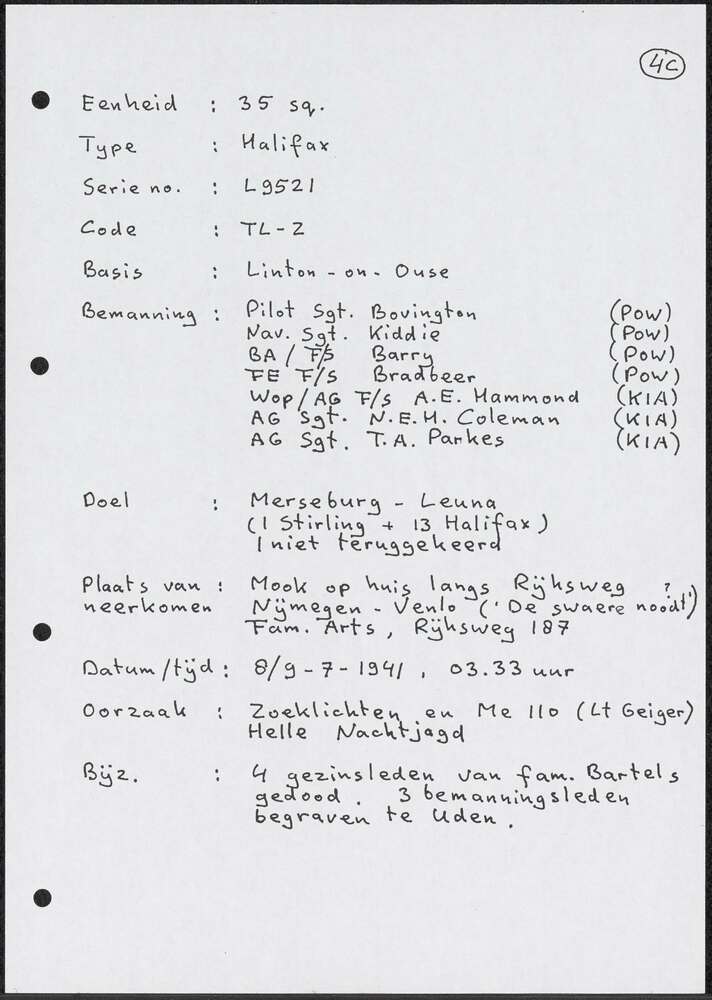 4C
Eenheid : 35 sq.
Type : Halifax
Serie no. : L9521
Code : TL-Z
Basis : Linton-on-Ouse
Bemanning : Pilot Sgt. Bovington (POW)
Nav. Sgt. Kiddie (POW)
BA / F/S Barry (POW)
FE F/S Bradbeer (POW)
WOP/AG F/S A.E. Hammond (KIA)
AG Sgt. N.E.H. Coleman (KIA)
AG Sgt. T.A. Parkes (KIA)
Doel : Merseburg - Leuna
(1 Stirling + 13 Halifax)
1 niet teruggekeerd
Plaats van : Mook op huis langs Rijksweg ?
neerkomen Nijmegen - Venlo ('De swaere noodt')
Fam. Arts, Rijksweg 187
Datum/tijd : 8/9-7-1941, 03.33 uur
Oorzaak : Zoeklichten en Me 110 (Lt Geiger)
Helle Nachtjagd
Bijz. : 4 gezinsleden van fam. Bartels
gedood. 3 bemanningsleden
begraven te Uden.